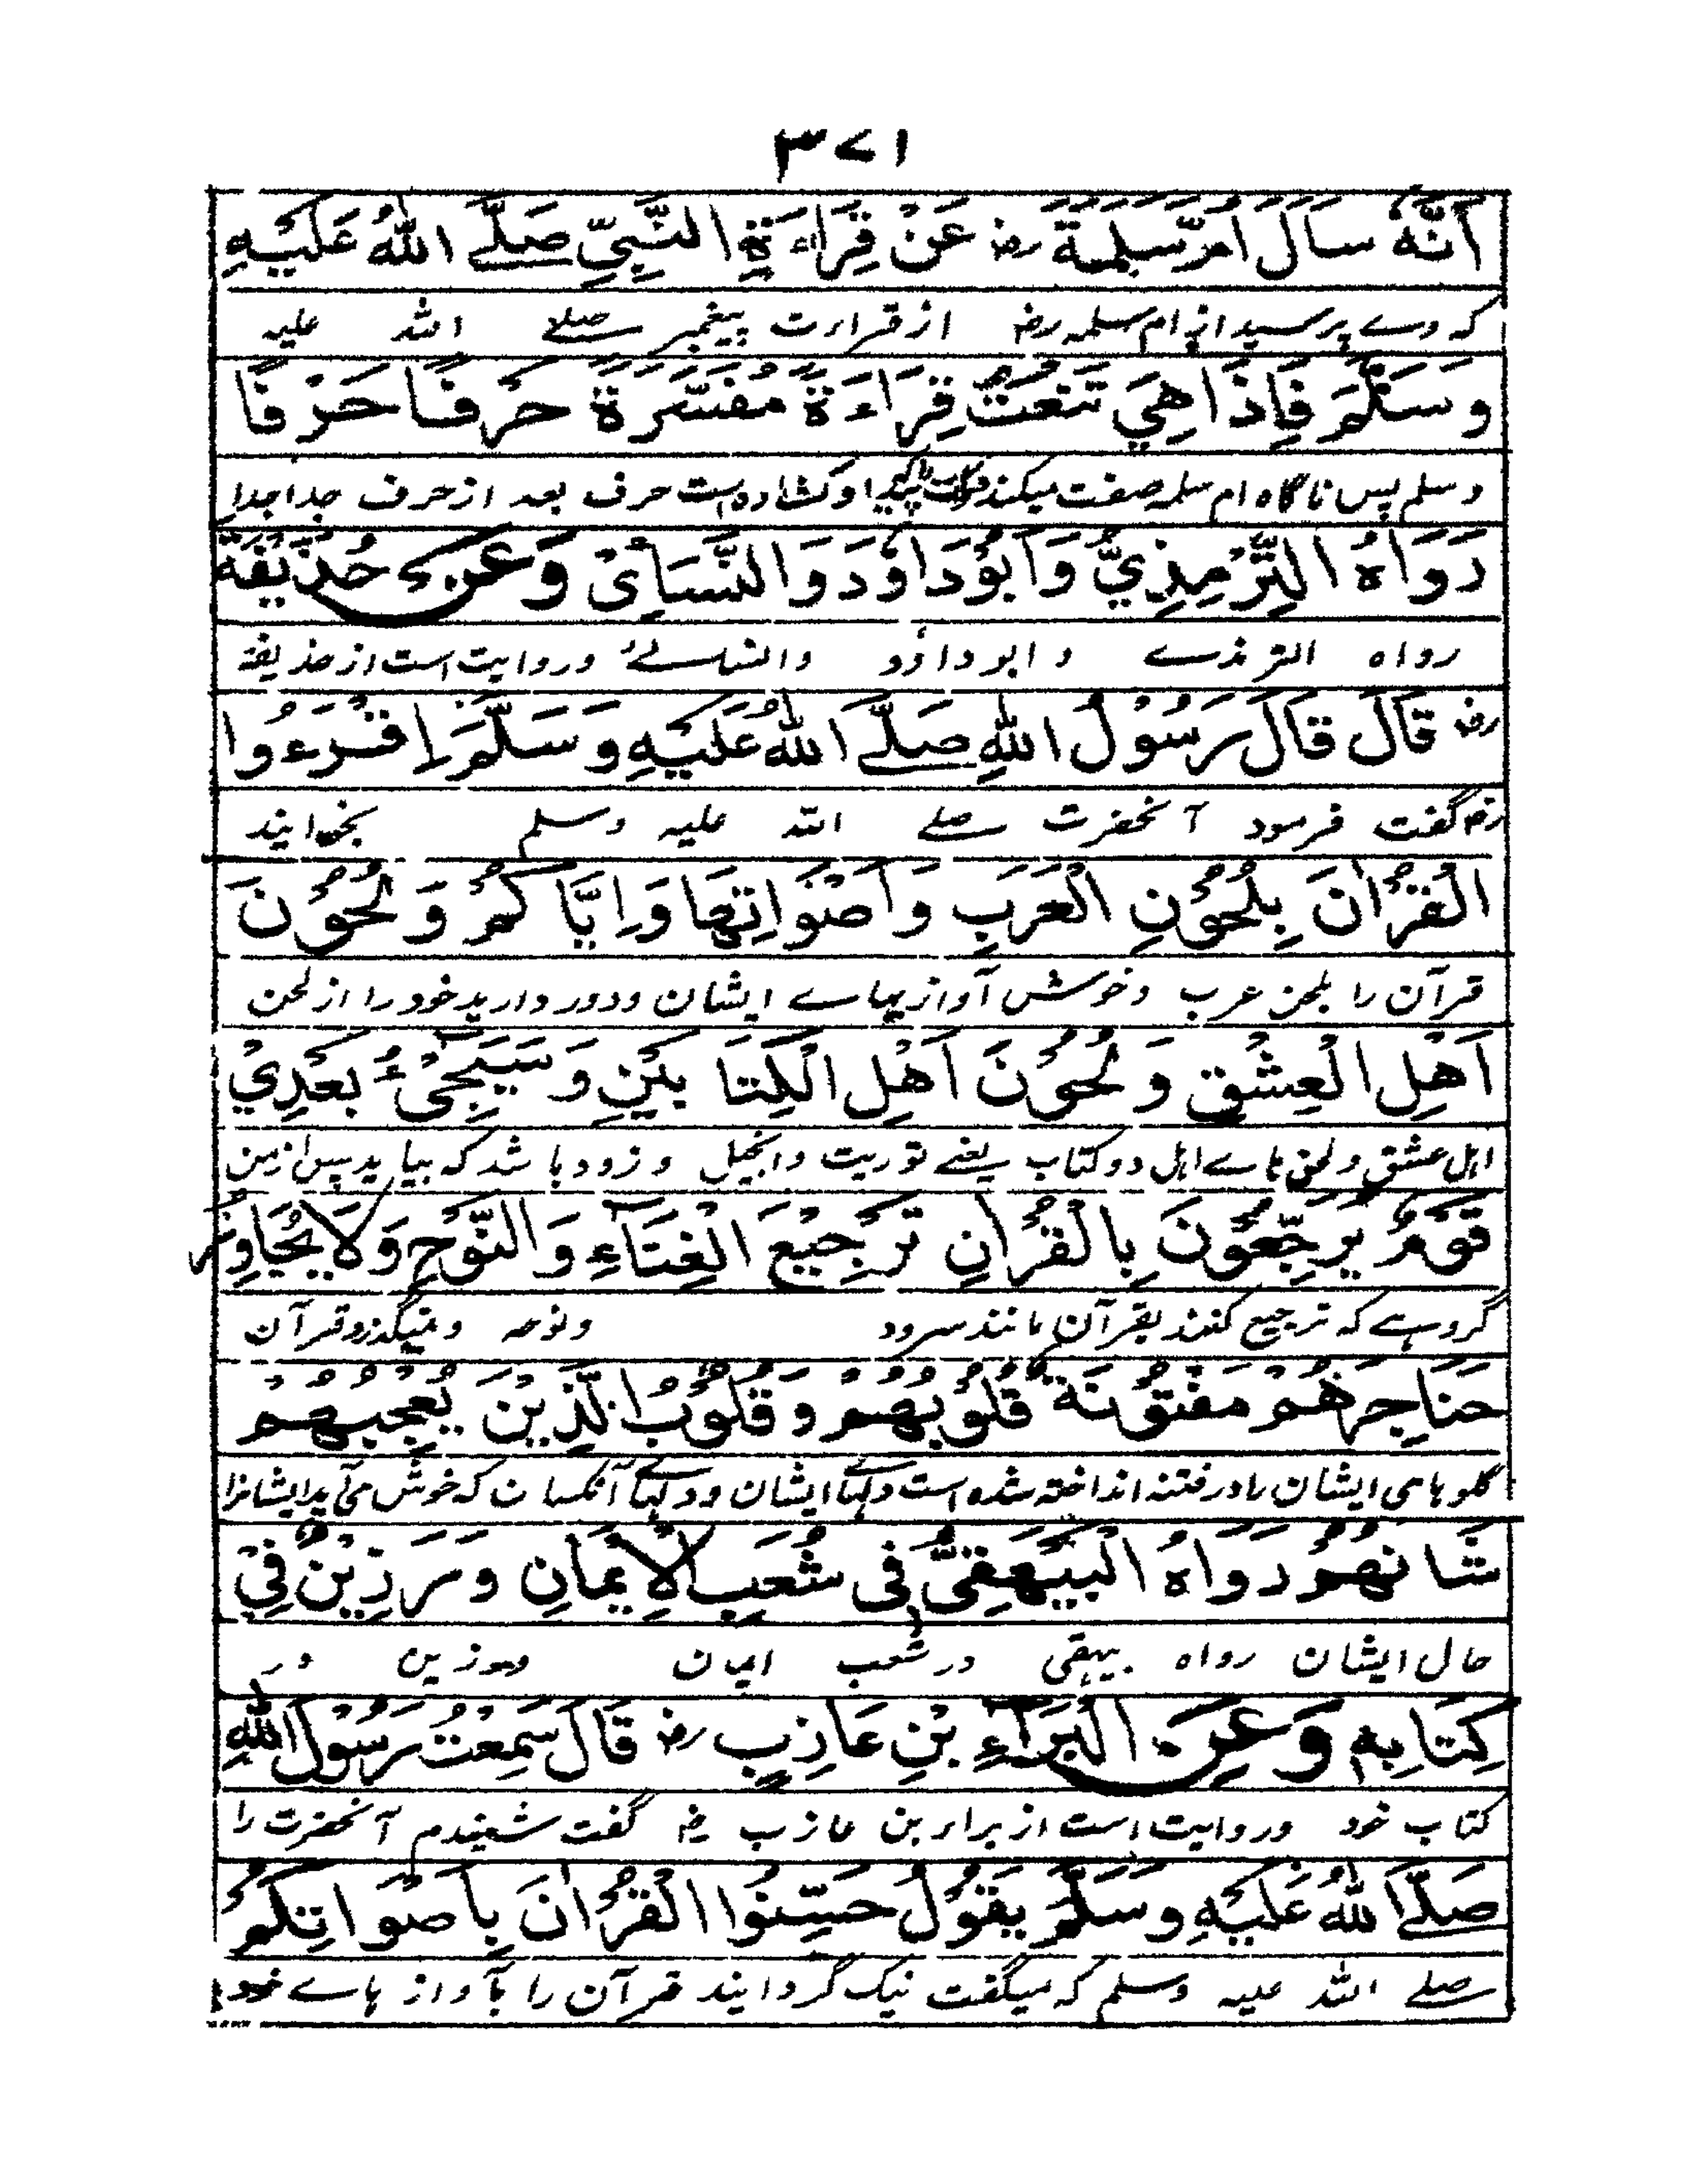 ۳۷۱
اَنَّهٗ سَاَلَ اُمَّ سَلِمَةَ رض عَنْ قِرَاءَةِ النَّبِيِّ صَلَّے اللّٰهُ عَلَيْهِ
که وے پرسید از ام سلمه رض از قراءت پیغمبر صلے الله علیه
وَسَلَّمَ فَاِذَا هِيَ تَنْعَتُ قِرَاءَةً مُفَسَّرَةً حَرْفًا حَرْفًا
وسلم پس ناگاه ام سلمه صفت میکند او کشاده است حرف بعد از حرف جدا جدا
رَوَاهُ التِّرْمِذِيُّ وَاَبُوْدَاوٗدَ وَالنَّسَائِیْ وَعَنْ حُذَيْفَةَ
رواه الترمذے و ابو داؤد والنسائے وروایت است از حذیفة
رض قَالَ قَالَ رَسُوْلُ اللّٰهِ صَلَّے اللّٰهُ عَلَيْهِ وَسَلَّمَ اِقْرَءُوا
رض گفت فرمود آنحضرت صلے الله علیه وسلم بخوانید
الْقُرْاٰنَ بِلُحُوْنِ الْعَرَبِ وَاَصْوَاتِهَا وَاِيَّاكُمْ وَلُحُوْنَ
قرآن را بلحن عرب وخوش آواز یهاے ایشان ودور دارید خود را از لحن
اَهْلِ الْعِشْقِ وَلُحُوْنَ اَهْلِ الْكِتَابَيْنِ وَسَيَجِیْءُ بَعْدِيْ
اهل عشق و لحن هاے اهل دو کتاب یعنے توریت وانجیل و زود باشد که بیاید پس از من
قَوْمٌ يُرَجِّعُوْنَ بِالْقُرْاٰنِ تَرْجِيْعَ الْغِنَآءِ وَالنَّوْحِ وَلَا يُجَاوِزُ
گروهے که ترجیع کنند بقرآن مانند سرود ونوحه ونمیگذرد قرآن
حَنَاجِرَهُمْ مَفْتُوْنَةً قُلُوْبُهُمْ وَقُلُوْبُ الَّذِيْنَ يُعْجِبُهُمْ
گلو هامی ایشان را در فتنه انداخته شده است دلهاے ایشان ودلهاے آنکسان که خوش می آید ایشانرا
شَانُهُمْ رَوَاهُ الْبَيْهَقِیُّ فِی شُعَبِ الْاِيْمَانِ وَرَزِيْنٌ فِيْ
حال ایشان رواه بیهقی در شعب ایمان ورزین در
كِتَابِهٖ وَعَنِ الْبَرَآءِ بْنِ عَازِبٍ رض قَالَ سَمِعْتُ رَسُوْلَ اللّٰهِ
کتاب خود وروایت است از براء بن عازب رض گفت شنیدم آنحضرت را
صَلَّے اللّٰهُ عَلَيْهِ وَسَلَّمَ يَقُوْلُ حَسِّنُوا الْقُرْاٰنَ بِاَصْوَاتِكُمْ
صلے الله علیه وسلم که میگفت نیک گردانید قرآن را بآواز هاے خود